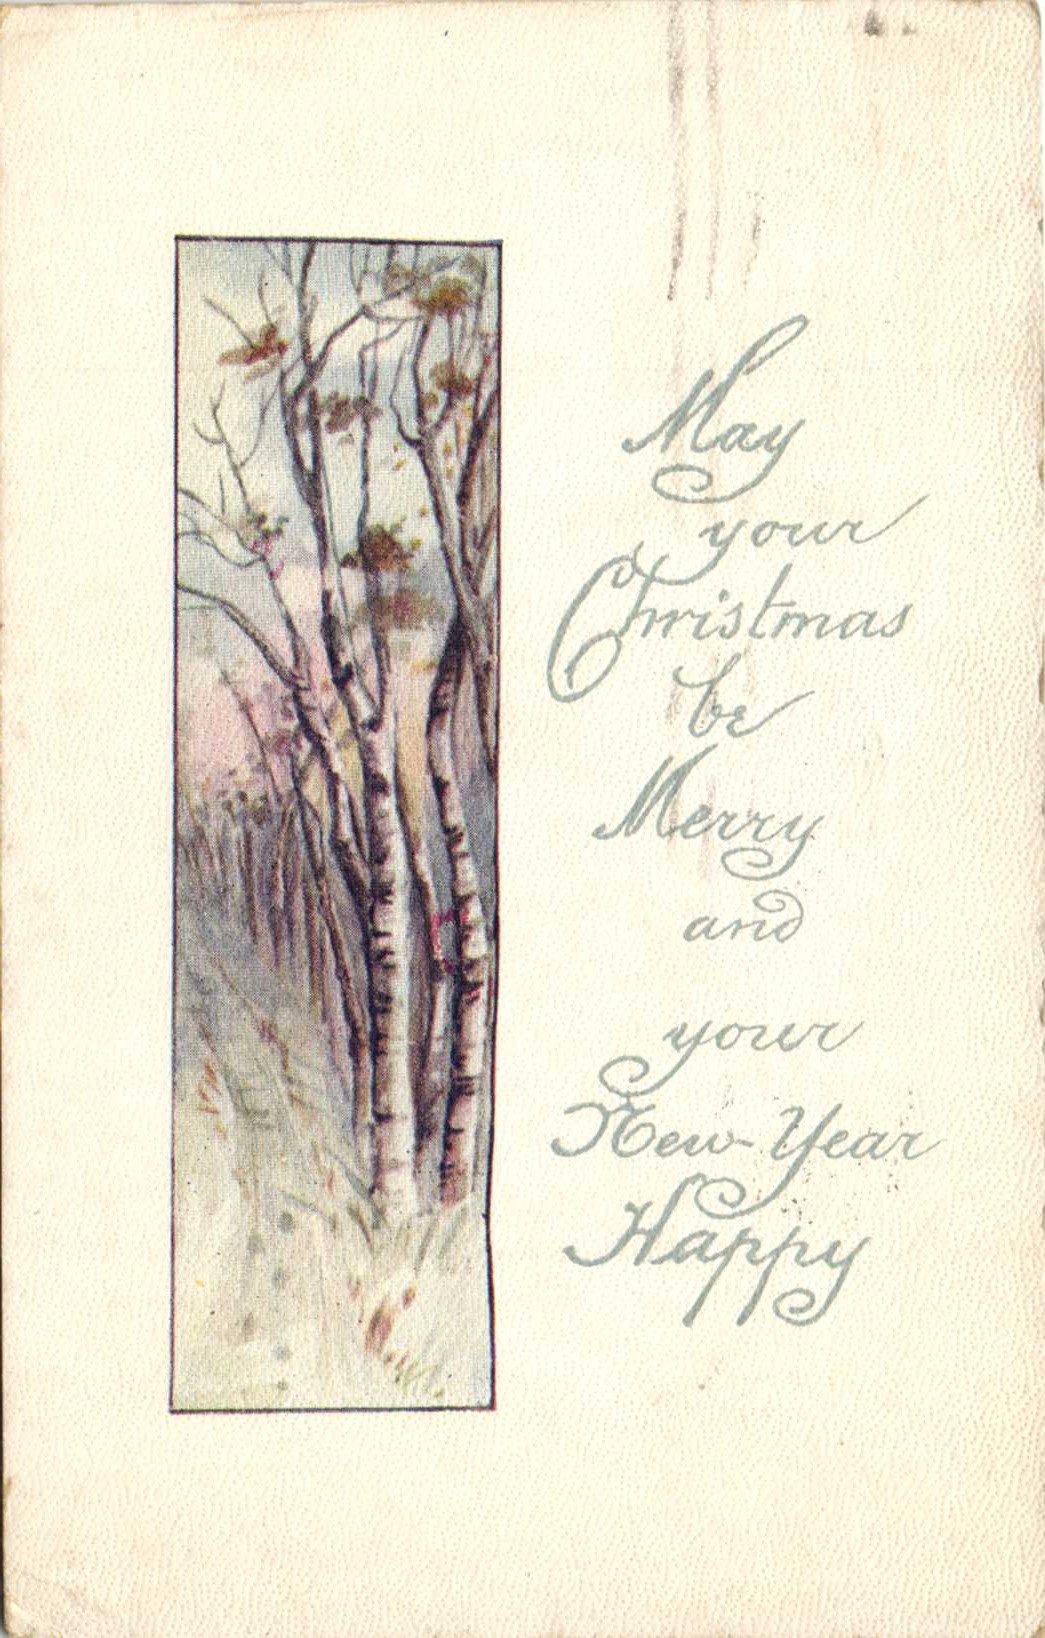 May
your
Christmas
be
Merry
and
your
New-Year
Happy